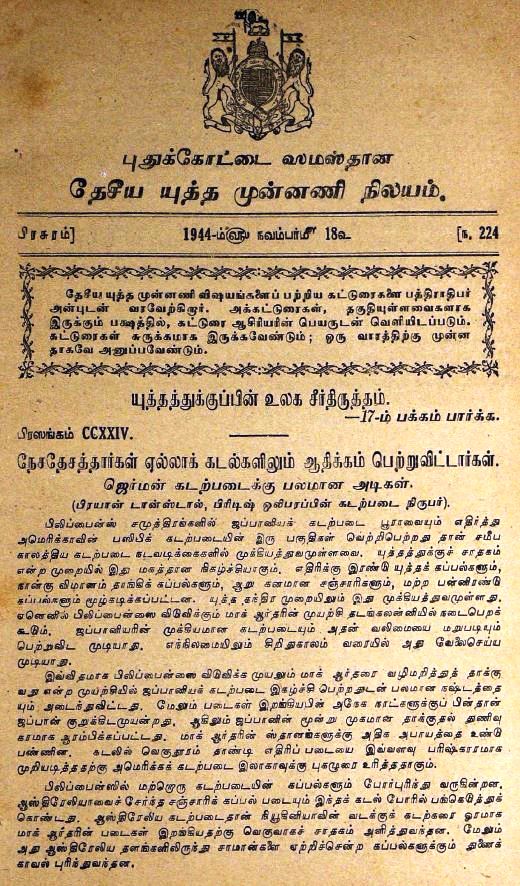 புதுக்கோட்டை ஸமஸ்தான
தேசீய யுத்த முன்னணி நிலயம்.
பிரசுரம்]
1944-ம்௵ நவம்பர்௴ 18௳
[ந. 224
தேசீய யுத்த முன்னணி விஷயங்களைப் பற்றிய கட்டுரைகளை பத்திராதிபர்
அன்புடன் வரவேற்கிறார். அக்கட்டுரைகள், தகுதியுள்ளவைகளாக
இருக்கும் பக்ஷத்தில், கட்டுரை ஆசிரியரின் பெயருடன் வெளியிடப்படும்.
கட்டுரைகள் சுருக்கமாக இருக்கவேண்டும்; ஒரு வாரத்திற்கு முன்ன
தாகவே அனுப்பவேண்டும்.
யுத்தத்துக்குப்பின் உலக சீர்திருத்தம்.
—17-ம் பக்கம் பார்க்க.
பிரஸங்கம் CCXXIV.
நேசதேசத்தார்கள் எல்லாக் கடல்களிலும் ஆதிக்கம் பெற்றுவிட்டார்கள்.
ஜெர்மன் கடற்படைக்கு பலமான அடிகள்.
(பிரயான் டான்ஸ்டால், பிரிடிஷ் ஒலிபரப்பின் கடற்படை நிருபர்).
பிலிப்பைன்ஸ் சமுத்திரங்களில் ஜப்பானியக் கடற்படை பூராவையும் எதிர்த்து
அமெரிக்காவின் பஸிபிக் கடற்படையின் இரு பகுதிகள் வெற்றிபெற்றது தான் சமீப
காலத்திய கடற்படை நடவடிக்கைகளில் முக்கியத்துவமுள்ளவை. யுத்தத்துக்குச் சாதகம்
என்ற முறையில் இது மகத்தான நிகழ்ச்சியாகும். எதிரிக்கு இரண்டு யுத்தக் கப்பல்களும்,
நான்கு விமானம் தாங்கிக் கப்பல்களும், ஆறு கனமான சஞ்சாரிகளும், மற்ற பன்னிரண்டு
கப்பல்களும் மூழ்கடிக்கப்பட்டன. யுத்த தந்திர முறையிலும் இது முக்கியத்துவமுள்ளது.
ஏனெனில் பிலிப்பைன்ஸை விடுவிக்கும் மாக் ஆர்தரின் முயற்சி தடங்கலன்னியில் நடைபெறக்
கூடும். ஜப்பானியரின் முக்கியமான கடற்படையும் அதன் வலிமையை மறுபடியும்
பெற்றுவிட முடியாது. எந்நிலமையிலும் சிறிதுகாலம் வரையில் அது வேலைசெய்ய
முடியாது.
இவ்விதமாக பிலிப்பைன்ஸை விடுவிக்க முயலும் மாக் ஆர்தரை வழிமறித்துத் தாக்கு
வது என்ற முயற்சியில் ஜப்பானியக் கடற்படை இகழ்ச்சி பெற்றதுடன் பலமான நஷ்டத்தை
யும் அடைந்துவிட்டது. மேலும் படைகள் இறங்கியபின் அநேக நாட்களுக்குப் பின்தான்
ஜப்பான் குறுக்கிடமுயன்றது. ஆகிலும் ஜப்பானின் மூன்று முகமான தாக்குதல் துணிவு
கரமாக ஆரம்பிக்கப்பட்டது. மாக் ஆர்தரின் ஸ்தானங்களுக்கு அதிக அபாயத்தை உண்டு
பண்ணின. கடலில் வெகுதூரம் தாண்டி எதிரிப் படையை இவ்வளவு பரிஷ்காரமாக
முறியடித்ததற்கு அமெரிக்கக் கடற்படை இலாகாவுக்கு புகழுரை உரித்ததாகும்.
பிலிப்பைன்ஸில் மற்றொரு கடற்படையின் கப்பல்களும் போர்புரிந்து வருகின்றன.
ஆஸ்திரேலியாவைச் சேர்ந்த சஞ்சாரிக் கப்பல் படையும் இந்தக் கடல் போரில் பங்கெடுத்துக்
கொண்டது. ஆஸ்திரேலிய கடற்படைதான் நியூகினியாவின் வடக்குக் கடற்கரை ஓரமாக
மாக் ஆர்தரின் படைகள் இறங்கியதற்கு வெகுவாகச் சாதகம் அளித்துவந்தன. மேலும்
அது ஆஸ்திரேலிய தளங்களிலிருந்து சாமான்களை ஏற்றிச்சென்ற கப்பல்களுக்கும் துணைக்
காவல் புரிந்துவந்தன.